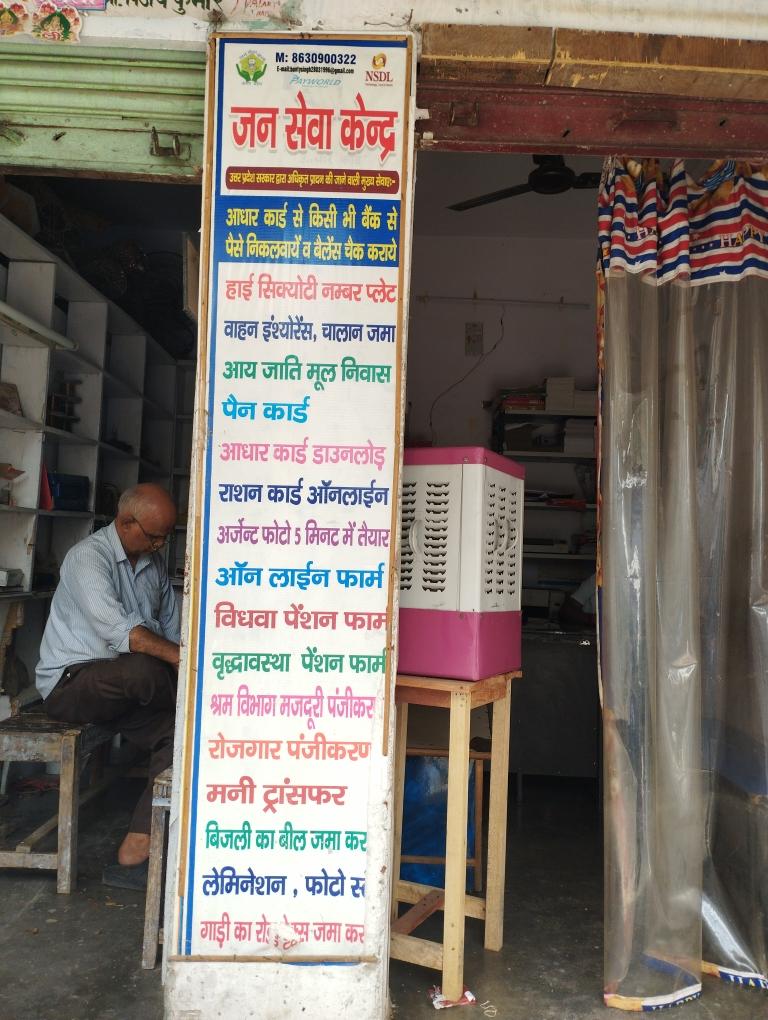 M: 8630900322
PAYWORLD
NSDL
जन सेवा केन्द्र
उत्तर प्रदेश सरकार द्वारा अधिकृत प्रदान की जाने वाली मुख्य सेवाः-
आधार कार्ड से किसी भी बैंक से
पैसे निकलवायें व बैलेंस चैक करायें
हाई सिक्योटी नम्बर प्लेट
वाहन इंश्योरेंस, चालान जमा
आय जाति मूल निवास
पैन कार्ड
आधार कार्ड डाउनलोड़
राशन कार्ड ऑनलाईन
अर्जेन्ट फोटो 5 मिनट में तैयार
ऑन लाईन फार्म
विधवा पेंशन फार्म
वृद्धावस्था पेंशन फार्म
श्रम विभाग मजदूरी पंजीकर
रोजगार पंजीकरण
मनी ट्रांसफर
बिजली का बील जमा कर
लेमिनेशन , फोटो स्
गाड़ी का जमा कर
HAPPY